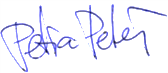 Petra Peter